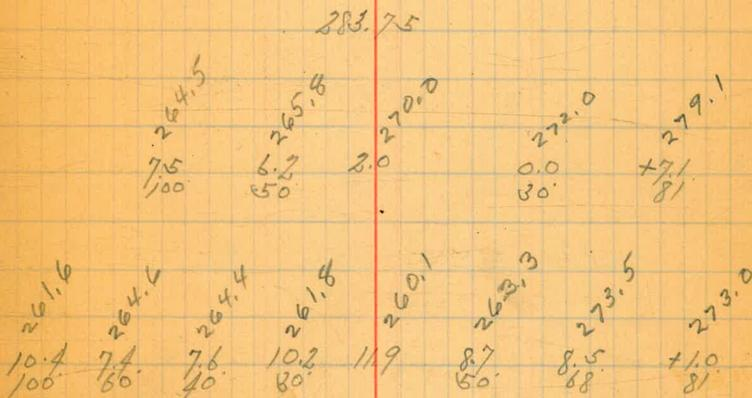 283.75
264.5 265.8 270.0 272.0 279.1
7.5 6.2 2.0 0.0 +7.1
100 50 30 81
261.6 264.6 264.4 261.8 260.1 263.3 273.5 273.0
10.4 7.4 7.6 10.2 11.9 8.7 8.5 +1.0
100 60 40 30 50 68 81